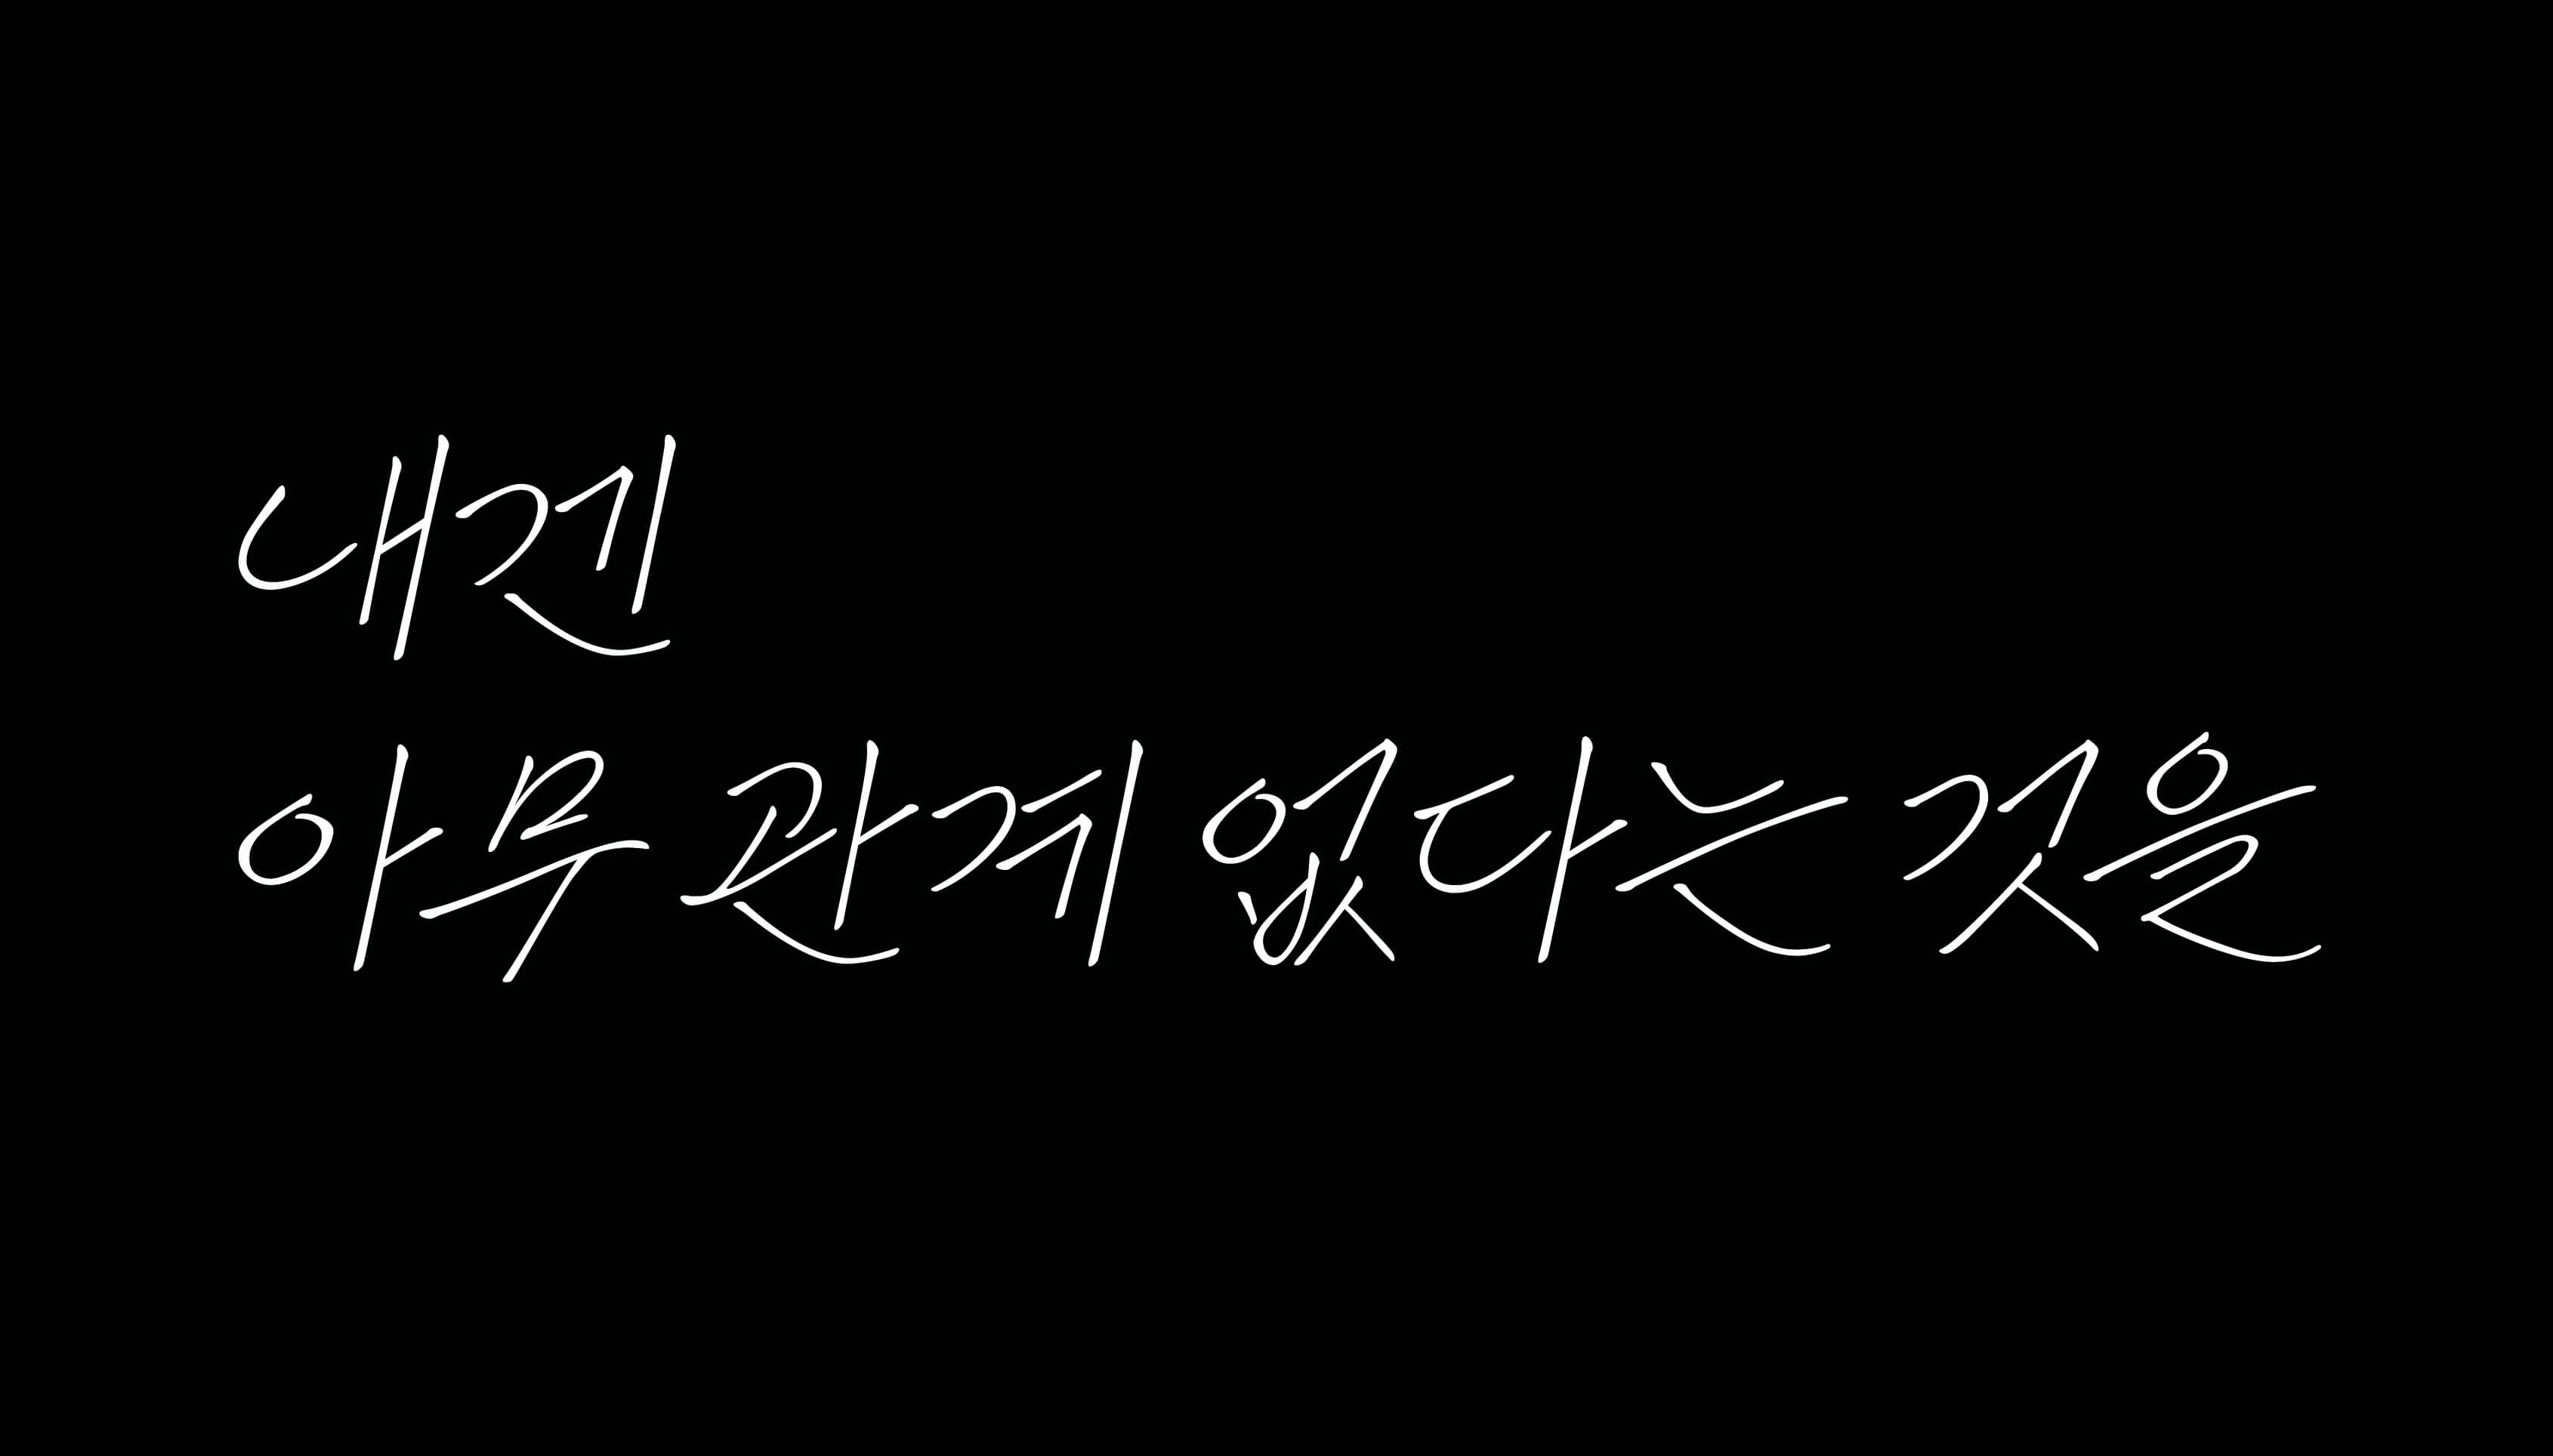 내겐
아무 관계 없다는 것을